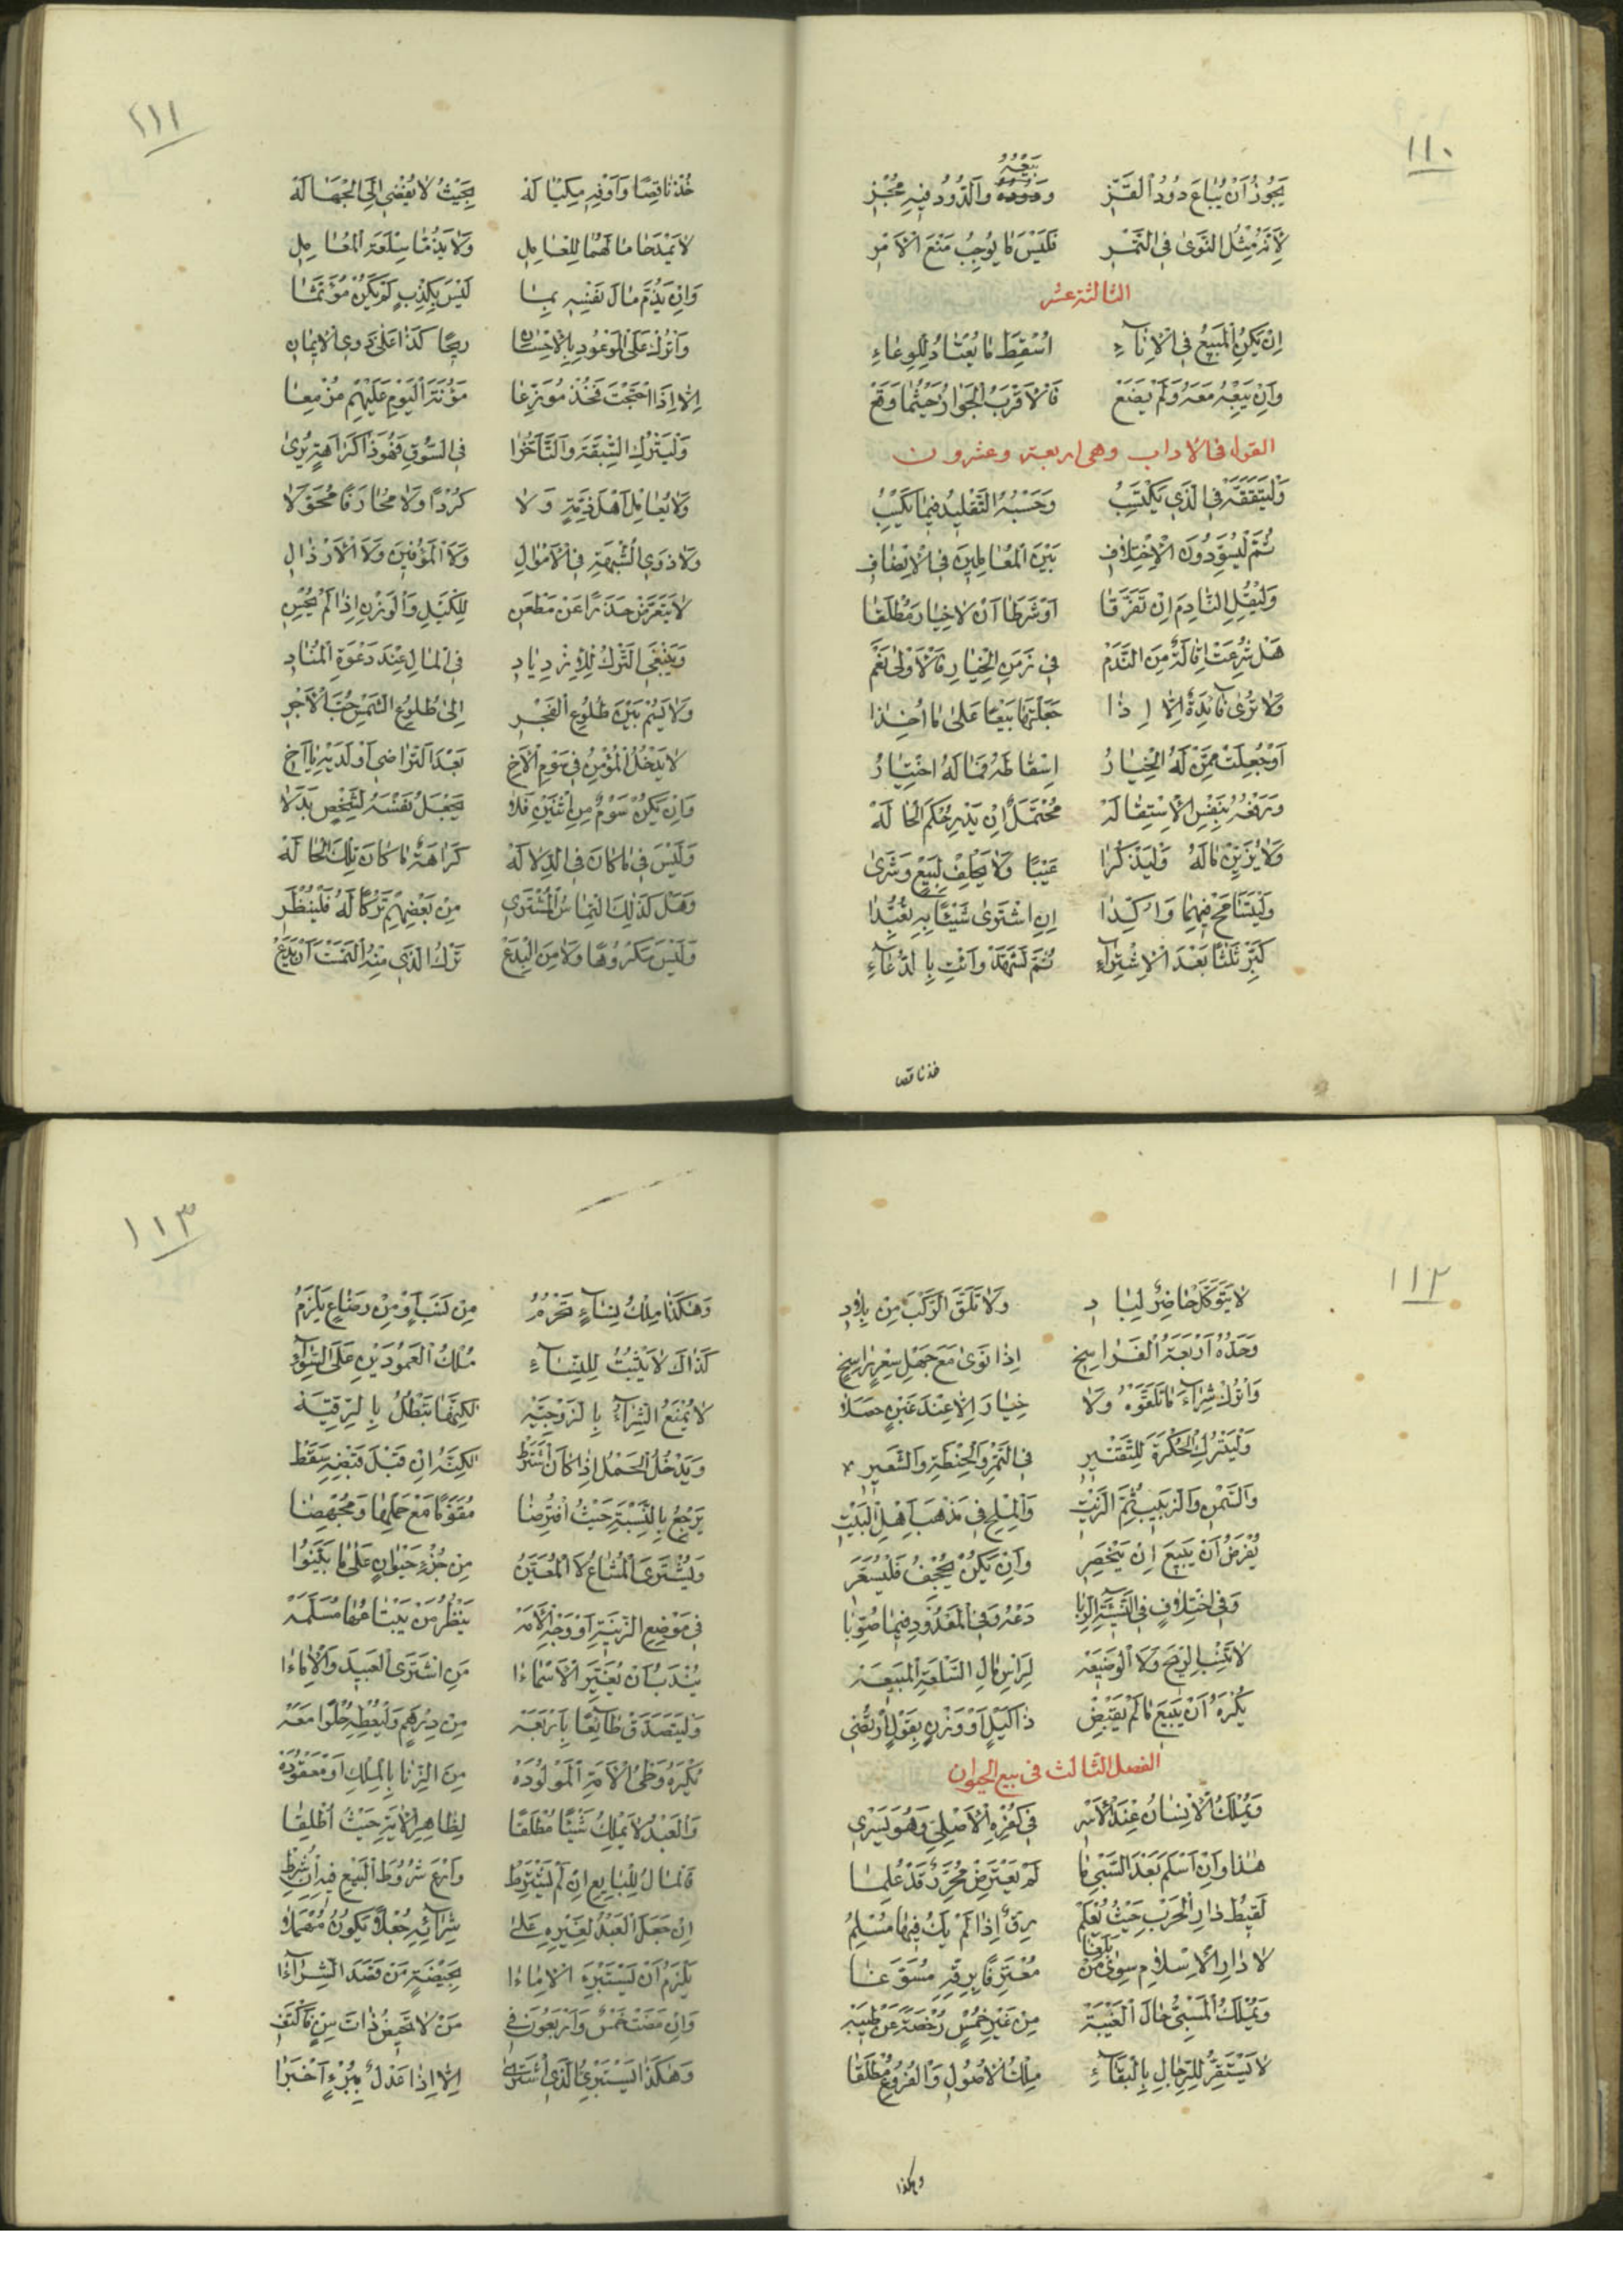 ١١٠
يَجُوزُ أَنْ يُبَاعَ دُودُ الْقَزِّ وَدُودُهُ وَالدُّودُ فِيهِ مُجْزِ
بَيْعُهُ
لِأَنَّهُ مِثْلُ النَّوَى فِي التَّمْرِ فَلَيْسَ مَا يُوجِبُ مَنْعَ الْأَمْرِ
الثالثة عشر
إِنْ يَكُنِ الْمَبِيعُ فِي الْإِنَاءِ اُسْقِطَ مَا يُعْتَادُ لِلْوِعَاءِ
وَإِنْ يَبِعْهُ مَعَهُ وَلَمْ يَضَعْ فَالْأَقْرَبُ الْجَوَازُ حَيْثُمَا وَقَعْ
القول في الاداب وهي اربعة وعشرون
وَلْيَتَفَقَّهْ فِي الَّذِي يَكْتَسِبُ وَحَسْبُهُ التَّقْلِيدُ فِيمَا يَكْسِبُ
ثُمَّ لْيُسَوِّ دُونَ الْاِخْتِلَافِ بَيْنَ الْمُعَامِلِينَ فِي الْإِنْصَافِ
وَلْيُقِلِ النَّادِمَ إِنْ تَفَرَّقَا أَوْ شَرَطَا أَنْ لَا خِيَارَ مُطْلَقَا
هَلْ شُرِعَتْ إِقَالَةٌ مِنَ النَّدَمْ فِي زَمَنِ الْخِيَارِ فَالْأَوْلَى نَعَمْ
وَلَا تَرَى فَائِدَةً إِلَّا إِذَا جَعَلْتَهَا بَيْعًا عَلَى مَا أُخِذَا
أَوْ جُعِلَتْ مِمَّنْ لَهُ الْخِيَارُ إِسْقَاطَهُ فَمَا لَهُ اخْتِيَارُ
وَرَفْعُهُ بِنَفْسِ الْاِسْتِقَالَهْ مُحْتَمَلٌ إِنْ يَدْرِ حُكْمَ الْحَالَهْ
وَلَا يُزَيِّنْ مَالَهُ وَلْيَذْكُرَا عَيْبًا وَلَا يَحْلِفْ لِبَيْعٍ وَشِرَى
وَلْيَتَسَامَحْ فِيهِمَا وَأَكِّدَا إِنِ اشْتَرَى شَيْئًا بِهِ تُعُبِّدَا
كَبِّرْ ثَلَثًا بَعْدَ الْاِشْتِرَاءِ ثُمَّ تَشَهَّدْ وَائْتِ بِالدُّعَاءِ
خذ ناقصا
١١١
خُذْ نَاقِصًا وَأَوْفِهِ مِكْيَالَهْ بِحَيْثُ لَا يُفْضِي إِلَى الْجَهَالَهْ
لَا يَمْدَحَا مَا لَهُمَا لِلْعَامِلِ وَلَا يَذُمَّا سِلْعَةَ الْمُعَامِلِ
وَإِنْ يَذُمَّ مَالَ نَفْسِهِ بِمَا لَيْسَ بِكِذْبٍ لَمْ يَكُنْ مُؤَثَّمَا
وَاتْرُكْ عَلَى الْمَوْعُودِ بِالْإِحْسَانِ رِبْحًا كَذَا عَلَى ذَوِي الْإِيمَانِ
إِلَّا إِذَا احْتَجْتَ فَخُذْ مُوَزِّعَا مَؤُنَةَ الْيَوْمِ عَلَيْهِمْ مُزْمِعَا
وَلْيَتْرُكِ السَّبْقَةَ وَالتَّأَخُّرَا فِي السُّوقِ فَهُوَ ذَا كَرَاهَةٍ يُرَى
وَلَا يُعَامِلْ أَهْلَ ذِمَّةٍ وَلَا كُرْدًا وَلَا مُحَارَفًا مُحَوْقَلَا
وَلَا ذَوِي الشُّبْهَةِ فِي الْأَمْوَالِ وَلَا الْمَؤُفِينَ وَلَا الْأَرْذَالِ
لَا يَتَعَرَّضْ حَذَرًا عَنْ مَطْعَنِ لِلْكَيْلِ وَالْوَزْنِ إِذَا لَمْ يُحْسِنِ
وَيَنْبَغِي التَّرْكُ لِلِازْدِيَادِ فِي الْمَالِ عِنْدَ دَعْوَةِ الْمُنَادِ
وَلَا يَسُمْ بَيْنَ طُلُوعِ الْفَجْرِ إِلَى طُلُوعِ الشَّمْسِ حُبَّ الْأَجْرِ
لَا يَدْخُلُ الْمُؤْمِنُ فِي سَوْمِ الْأَخِ بَعْدَ التَّرَاضِي أَوْ لَدَيْهِ يَا أَخِ
وَإِنْ يَكُنْ سَوْمٌ مِنِ اثْنَيْنِ فَلَا يَجْعَلُ نَفْسَهُ لِشَخْصٍ بَدَلَا
وَلَيْسَ فِي مَا كَانَ فِي الدِّلَالَهْ كَرَاهَةٌ مَا كَانَ تِلْكَ الْحَالَهْ
وَهَلْ كَذَلِكَ الْتِمَاسُ الْمُشْتَرِي مِنْ بَعْضِهِمْ تَرْكًا لَهُ فَلْيُنْظَرِ
وَلَيْسَ مَكْرُوهًا وَلَا مِنَ الْبِدَعْ تَرْكُ الَّذِي مِنْهُ الْتَمَسْتَ أَنْ يَدَعْ
١١٢
لَا يَتَوَكَّلْ حَاضِرٌ لِبَادِ وَلَا تَلَقَّ الرَّكْبَ مِنْ بِلَادِ
وَحَدُّهُ أَرْبَعَةُ الْفَرَاسِخِ إِذَا نَوَى مَعَ جَهْلِ سِعْرٍ رَاسِخِ
وَاتْرُكْ شِرَاءَ مَا تَلَقَّوْهُ وَلَا خِيَارَ إِلَّا عِنْدَ غَبْنٍ حَصَلَا
وَلْيَتْرُكِ الْحُكْرَةَ لِلتَّقْتِيرِ فِي التَّمْرِ وَالْحِنْطَةِ وَالشَّعِيرِ
وَالسَّمْنِ وَالزَّبِيبِ ثُمَّ الزَّيْتِ وَالْمِلْحِ فِي مَذْهَبِ أَهْلِ الْبَيْتِ
يُفْرَضُ أَنْ يَبِيعَ إِنْ يَنْحَصِرِ وَإِنْ يَكُنْ يُجْحِفُ فَلْيُسَعَّرِ
وَفِي اخْتِلَافٍ فِي النَّسِيئَةِ الرِّبَا دَعْهُ وَفِي الْمَعْدُودِ فِيمَا صُوِّبَا
لَا تَنْسُبِ الرِّبْحَ وَلَا الْوَضِيعَهْ لِرَأْسِ مَالِ السِّلْعَةِ الْمَبِيعَهْ
يُكْرَهُ أَنْ يَبِيعَ مَا لَمْ يَقْبِضْ ذَا كَيْلٍ أَوْ وَزْنٍ بِقَوْلٍ ارْتُضِي
الفصل الثالث في بيع الحيوان
وَيُمْلَكُ الْإِنْسَانُ عِنْدَ الْأَسْرِ فِي كُفْرِهِ الْأَصْلِيِّ وَهُوَ يَسْرِي
هٰذَا وَإِنْ أَسْلَمَ بَعْدَ السَّبْيِ مَا لَمْ يَعْتَرِضْ مُحَرِّرٌ قَدْ عُلِمَا
لَقِيطُ دَارِ الْحَرْبِ حَيْثُ يُعْلَمُ رِقٌّ إِذَا لَمْ يَكُ فِيهَا مُسْلِمُ
لَا دَارِ الْاِسْلَامِ سِوَى مَنْ بَلَغَا مُعْتَرِفًا بِرِقِّهِ مُسَوَّغَا
وَيُمْلَكُ الْمَسْبِيُّ حَالَ الْغَيْبَهْ مِنْ غَيْرِ خُمْسٍ رُخْصَةً عَنْ طِيبَهْ
لَا يَسْتَقِرُّ لِلرِّجَالِ بِالْبَقَاءِ مِلْكُ الْأُصُولِ وَالْفُرُوعِ مُطْلَقَا
وهكذا
١١٣
وَهَكَذَا مِلْكُ نِسَاءٍ تَحْرُمُ مِنْ نَسَبٍ أَوْ مِنْ رَضَاعٍ يَلْزَمُ
كَذَاكَ لَا يَثْبُتُ لِلنِّسَاءِ مُلْكُ الْعَمُودَيْنِ عَلَى السَّوَاءِ
لَا يُمْنَعُ الشِّرَاءُ بِالزَّوْجِيَّهْ لَكِنَّهَا تَبْطُلُ بِالرِّقِّيَّهْ
وَيَدْخُلُ الْحَمْلُ إِذَا كَانَ اشْتُرِطْ لَكِنَّهُ إِنْ قَبْلَ قَبْضِهِ سَقَطْ
يَرْجِعُ بِالنِّسْبَةِ حَيْثُ افْتُرِضَا مُقَوَّمًا مَعَ حَمْلِهَا وَمُجْهِضَا
وَيُشْتَرَى الْمُشَاعُ لَا الْمُعَيَّنُ مِنْ جُزْءِ حَيْوَانٍ عَلَى مَا بَيَّنُوا
فِي مَوْضِعِ الزِّينَةِ أَوْ وَجْهِ الْأَمَهْ يَنْظُرُ مَنْ يَبْتَاعُهَا مُسَلَّمَهْ
يُنْدَبُ أَنْ يُغَيِّرَ الْأَسْمَاءَا مَنِ اشْتَرَى الْعَبِيدَ وَالْإِمَاءَا
وَلْيَتَصَدَّقْ طَائِعًا بِأَرْبَعَهْ مِنْ دِرْهَمٍ وَلْيُعْطِهِ حُلْوًا مَعَهْ
يُكْرَهُ وَطْئُ الْأَمَةِ الْمَوْلُودَهْ مِنَ الزِّنَا بِالْمِلْكِ أَوْ مَعْقُودَهْ
وَالْعَبْدُ لَا يَمْلِكُ شَيْئًا مُطْلَقَا لِظَاهِرِ الْآيَةِ حَيْثُ أُطْلِقَا
فَالْمَالُ لِلْبَايِعِ إِنْ لَمْ يُشْتَرَطْ وَارْعَ شُرُوطَ الْبَيْعِ فِيهِ إِنْ شُرِطْ
إِنْ جَعَلَ الْعَبْدُ لِغَيْرِهِ عَلَى شِرَائِهِ جُعْلًا يَكُونُ مُهْمَلَا
يَلْزَمُ أَنْ يَسْتَبْرِءَ الْإِمَاءَا بِحَيْضَةٍ مَنْ قَصَدَ الشِّرَاءَا
وَإِنْ مَضَتْ خَمْسٌ وَأَرْبَعُونَ فِي مَنْ لَا تَحِيضُ ذَاتَ سِنٍّ فَاكْتَفِ
وَهَكَذَا يَسْتَبْرِئُ الَّذِي اشْتَرَى إِلَّا إِذَا عَدْلٌ بِبُرْءٍ أَخْبَرَا